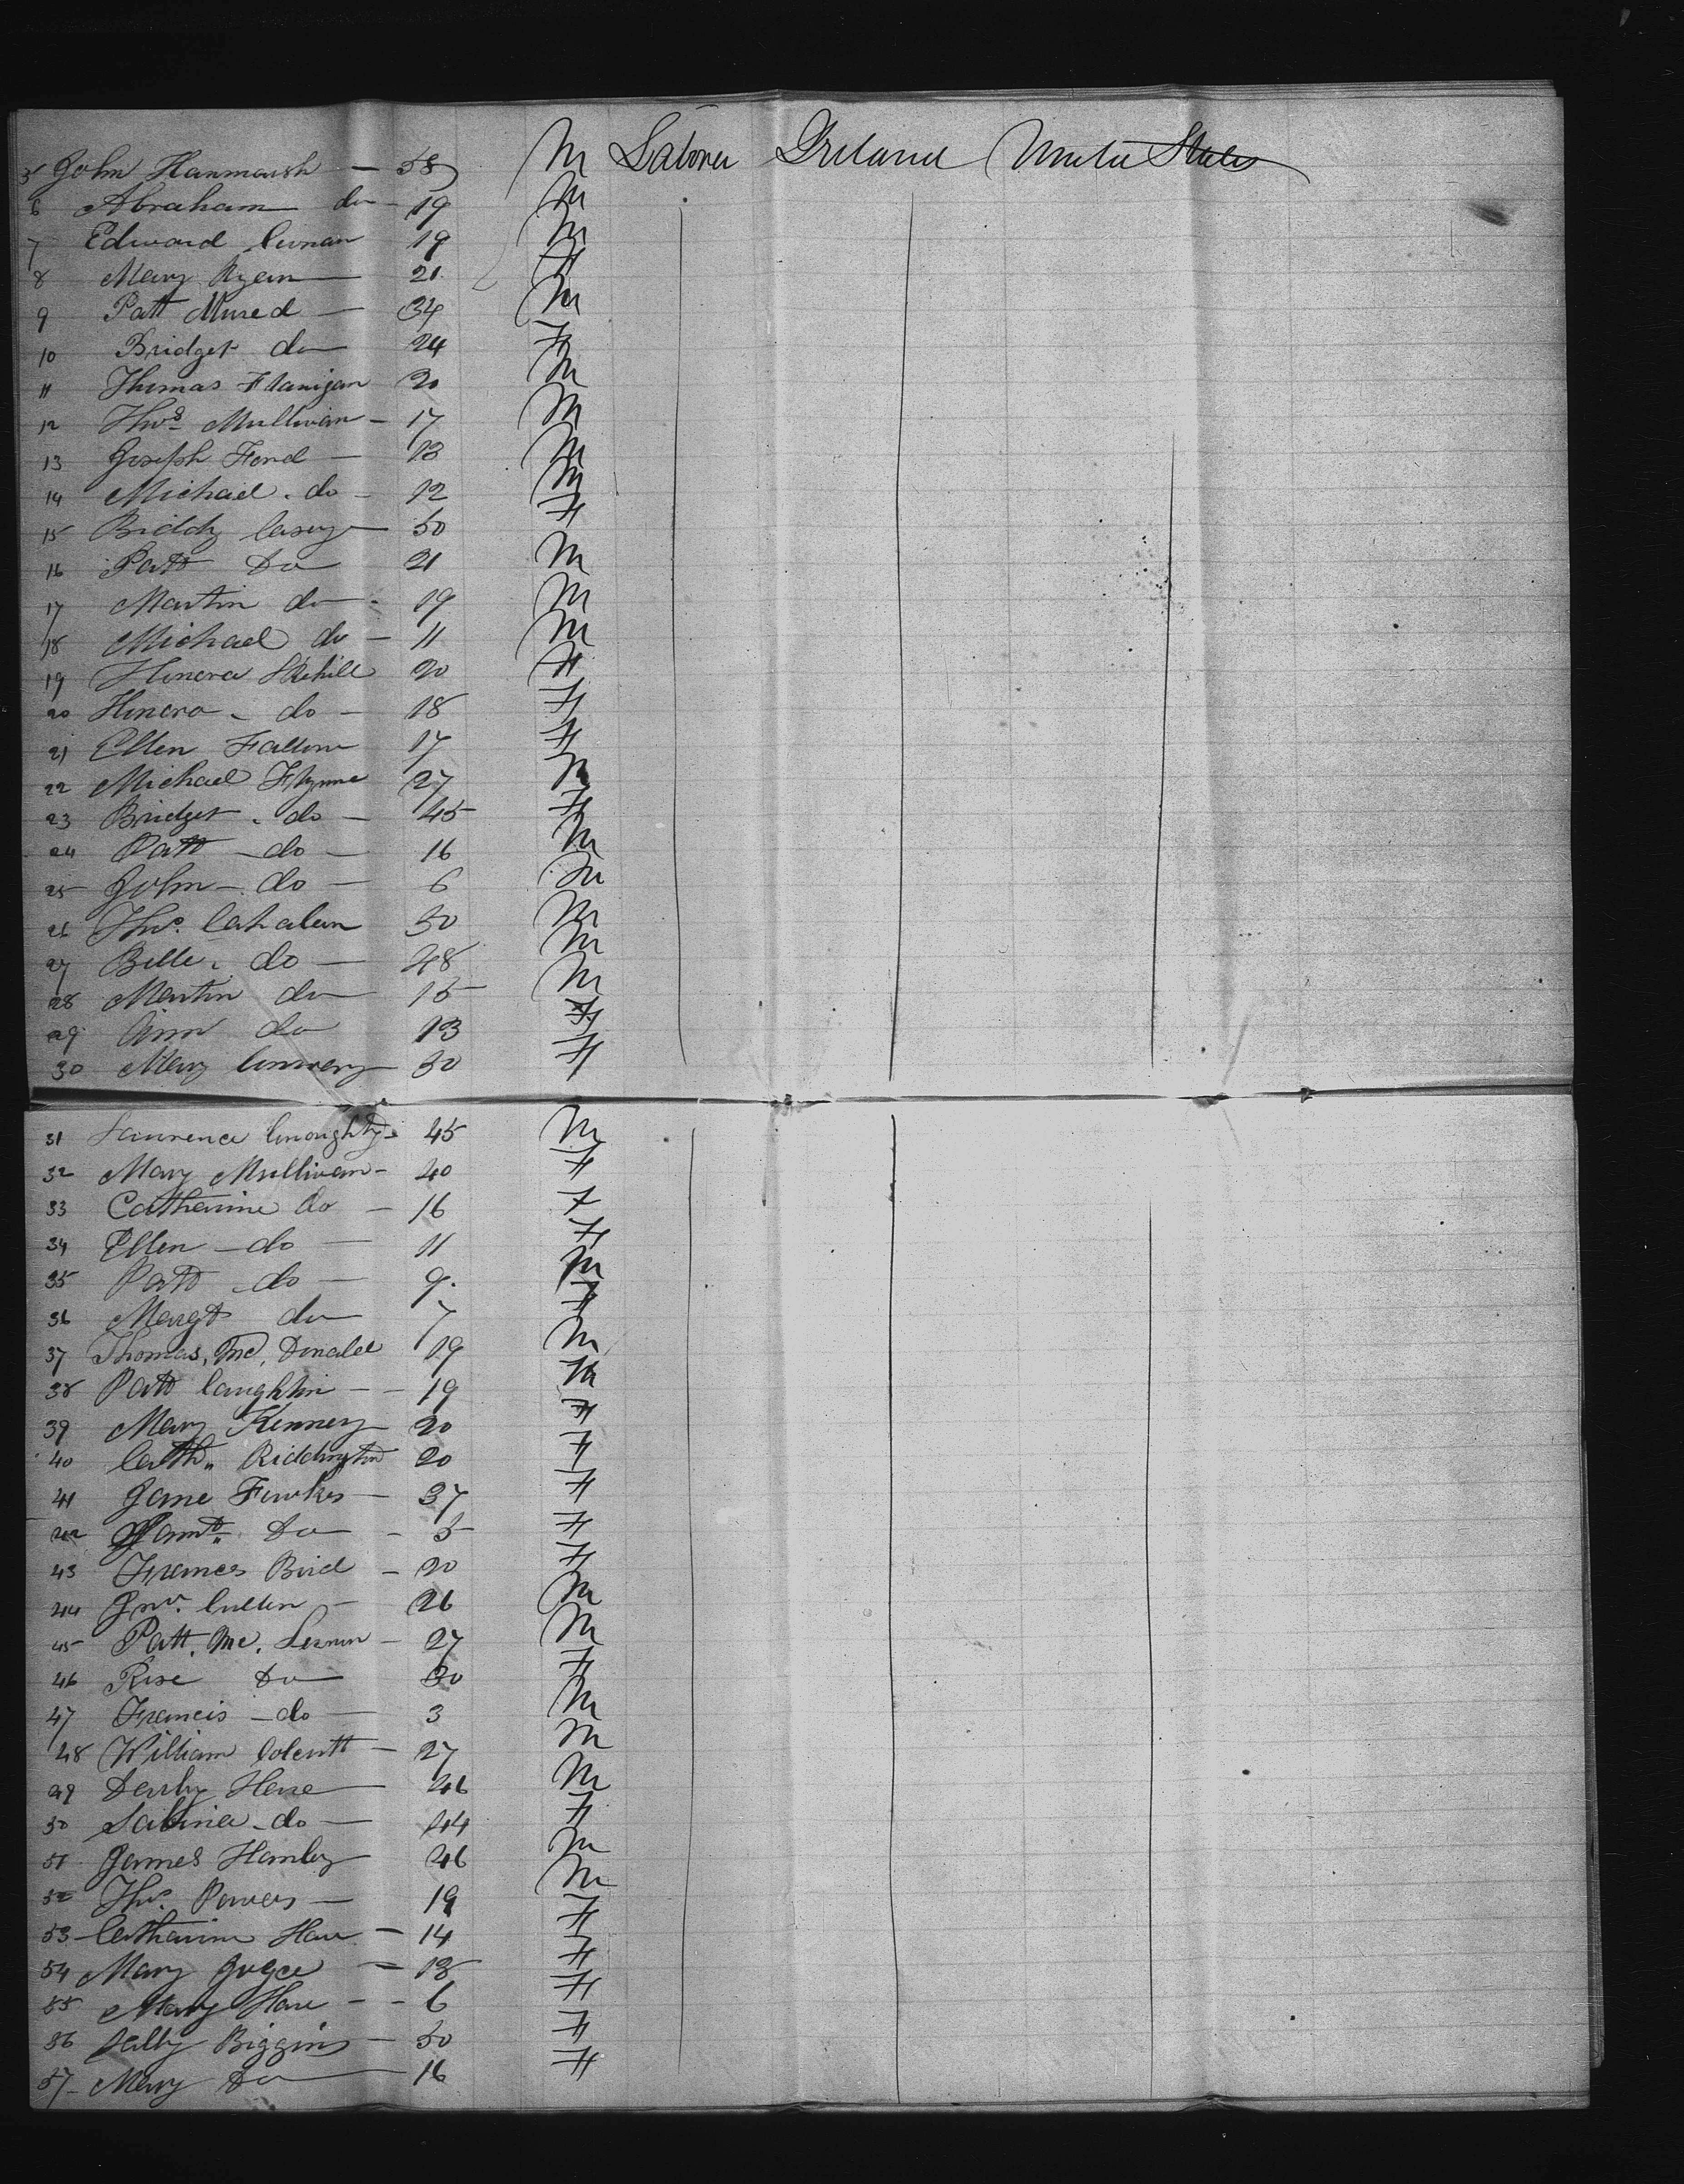 5 John Hanmarsh — 58 M Laborer Ireland United States
6 Abraham do - 19 M
7 Edward 19 M
8 Mary Ryan — 21 F
9 Patt Mured — 34 M
10 Bridget do 24 F
11 Thomas Flanigan 20 M
12 Thos Mullivan - 17 M
13 Joseph Ford — M
14 Michael do - 12 M
15 Biddy Casey — 50 F
16 Patt Do 21 M
17 Martin do - 19 M
18 Michael do — 11 M
19 Honora Skehill 20 F
20 Honora - do — 18 F
21 Ellen Fallon 17 F
22 Michael Flynne 27 M
23 Bridget - do — 45 F
24 Patt - do — 16 M
25 John - do — 6 M
26 Tho. Cahalan 50 M
27 Bille - do — 48 M
28 Martin do — 15 M
29 Ann do 13 F
30 Mary Conwery 30 F
31 Laurence Conoughty - 45 M
32 Mary Mullivan - 40 F
33 Catharine do — 16 F
34 Ellen - do — 11 F
35 Patt - do — 9 M
36 Margt do 7 F
37 Thomas, Mc, Donald 19 M
38 Patt Caughlin - - 19 M
39 Mary Kenney 20 F
40 Cath. Riddington 20 F
41 Jane Fowkes — 37 F
42 Do - 5 F
43 Frances Bird - 20 F
44 Jno. Cullen - 26 M
45 Patt. Mc. Lernon - 27 M
46 Rose Do 30 F
47 Francis - do — 3 M
48 William Colcutt - 27 M
49 Darby Hare — 46 M
50 Sabina - do — 44 F
51 James Hanley 46 M
52 Tho. Powers — 19 M
53 Catharine Hare - 14 F
54 Mary Joyce - 18 F
55 Mary Hare - - 6 F
56 Sally Biggins - 50 F
57 Mary Do — 16 F